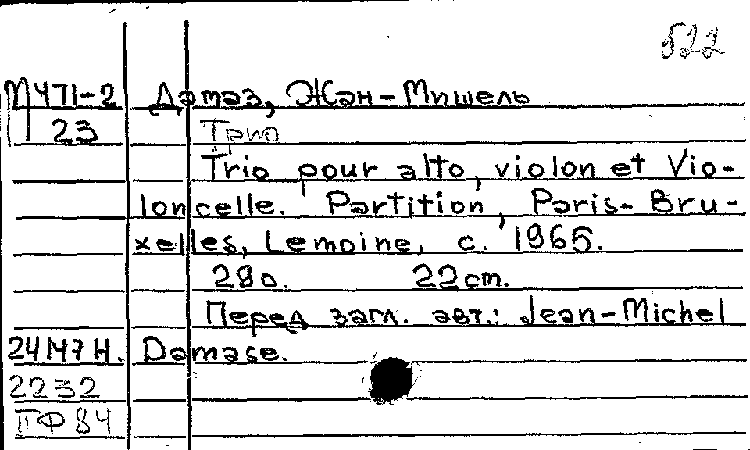 522
М471-2 Дамаз, Жан-Мишель
23 Трио
Trio pour alto, violon et Vio-
loncelle. Partition, Paris-Bru-
xelles, Lemoine, c. 1965.
28с. 22cm.
Перед загл. авт.: Jean-Michel
24М7Н. Damase.
2232
ПФ84